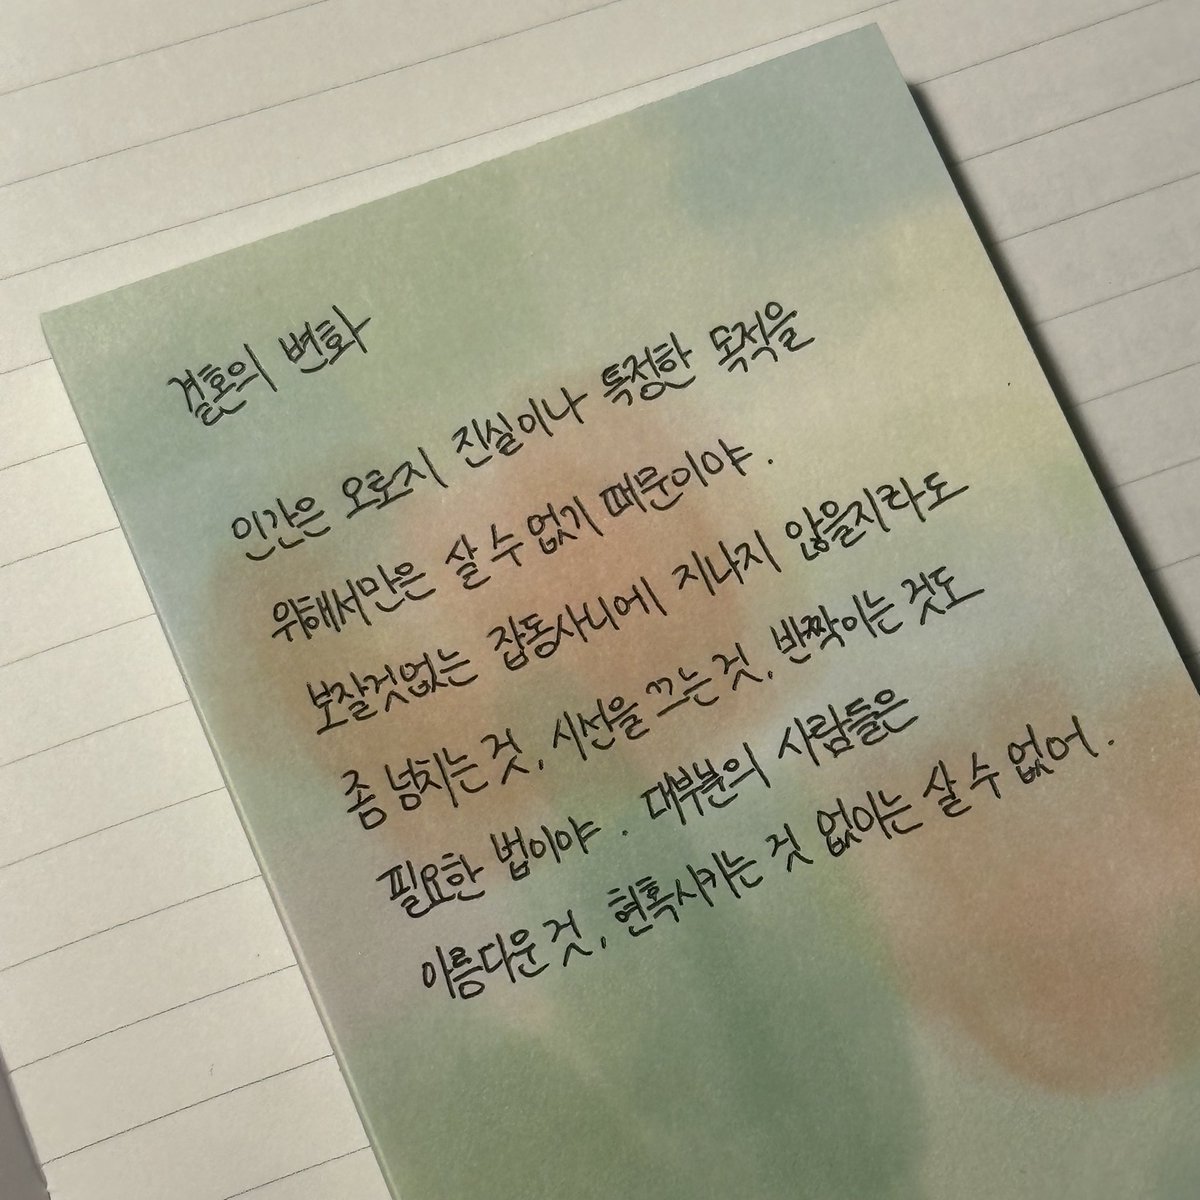 결혼의 변화
인간은 오로지 진실이나 특정한 목적을
위해서만은 살 수 없기 때문이야.
보잘것없는 잡동사니에 지나지 않을지라도
좀 넘치는 것, 시선을 끄는 것, 반짝이는 것도
필요한 법이야. 대부분의 사람들은
아름다운 것, 현혹시키는 것 없이는 살 수 없어.